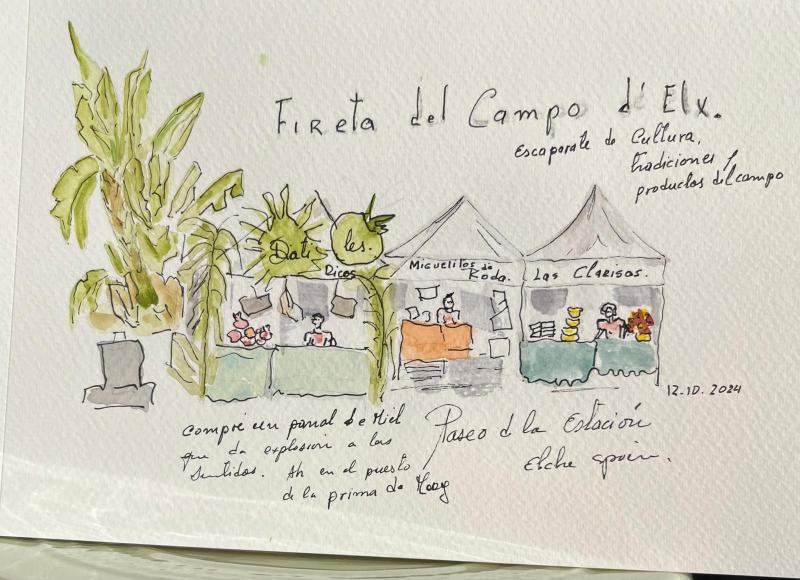 Fireta del Campo d'Elx.
Escaparate de Cultura,
tradiciones y
productos del campo
Dati les.
Ricos
Miguelitos de
Roda.
Las Clarisas.
12.10.2024
Compré un panal de Miel
que da explosión a los
Sentidos. Ah en el puesto
de la prima de
Paseo d la Estación
Elche spain.